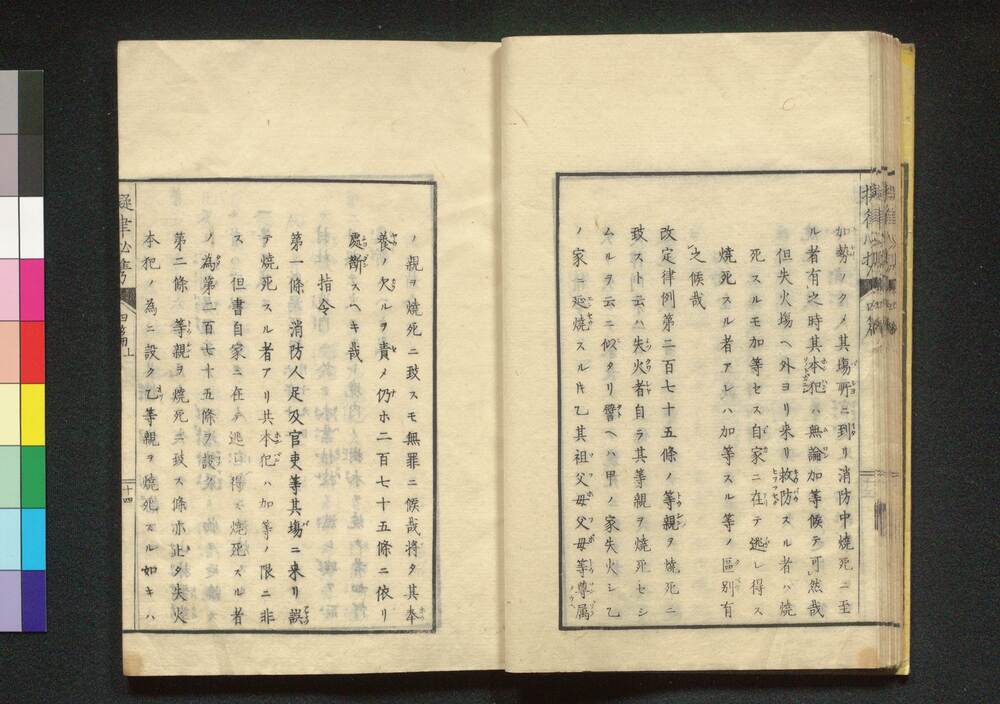 加勢ノタメ其塲所ニ到リ消防中燒死ニ至
ル者有之時其本犯ハ無論加等候テ可然哉
但失火塲ヘ外ヨリ来リ救防スル者ハ燒
死スルモ加等セス自家ニ在テ逃レ得ス
燒死スル者アレハ加等スル等ノ區別有
之候哉
改定律例第二百七十五條ノ等親ヲ燒死ニ
致スト云ハ失火者自ラ其等親ヲ燒死セシ
ムルヲ云ニ似タリ譬ヘハ甲ノ家失火シ乙
ノ家ニ延燒スル片乙其祖父母父母等尊属
ノ親ヲ燒死ニ致スモ無罪ニ候哉将タ其奉
養ノ欠ルヲ責メ仍ホ二百七十五條ニ依リ
處断スヘキ哉
指令
第一條 消防人足及官吏等其塲ニ来リ誤
テ燒死スル者アリ共本犯ハ加等ノ限ニ非
ス 但書自家ニ在テ逃ヒ得ス燒死スル者
ノ為第二百七十五條ヲ設ク
第二條 等親ヲ燒死ニ致ス條亦止タ失火
本犯ノ為ニ設ク乙等親ヲ燒死スル如キハ
擬律必携
四篇上
十四